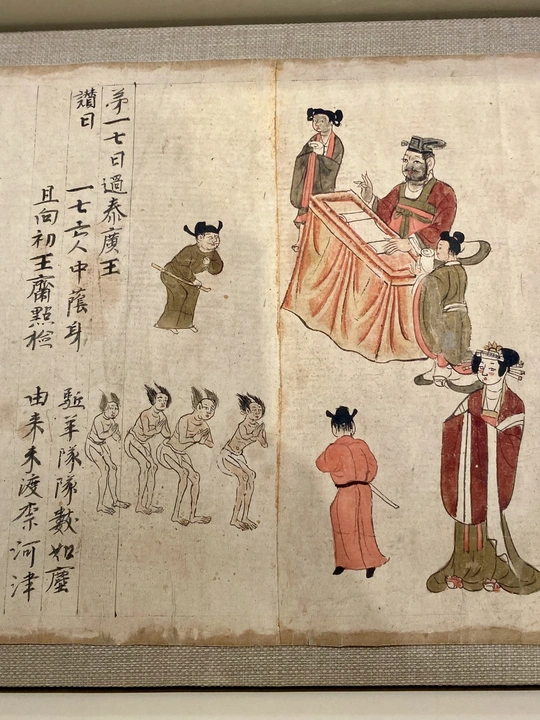 第一七日過泰廣王
讃曰 一七亡人中蔭身 駈羊隊隊數如塵
且向初王齋點檢 由来未渡柰河津